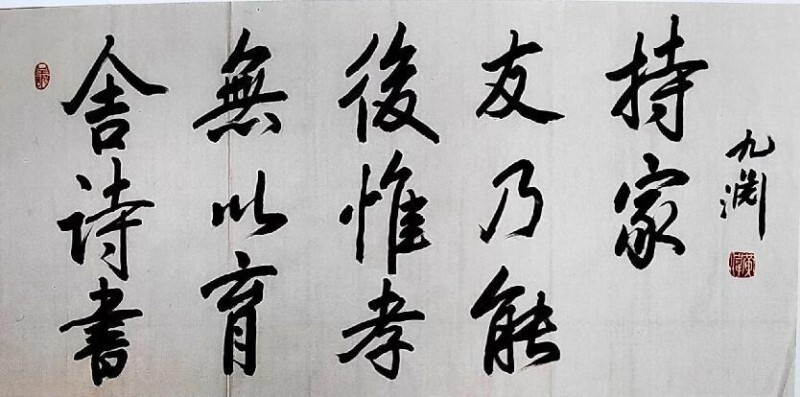 舍詩書
無以育
後惟孝
友乃能
持家
九渊